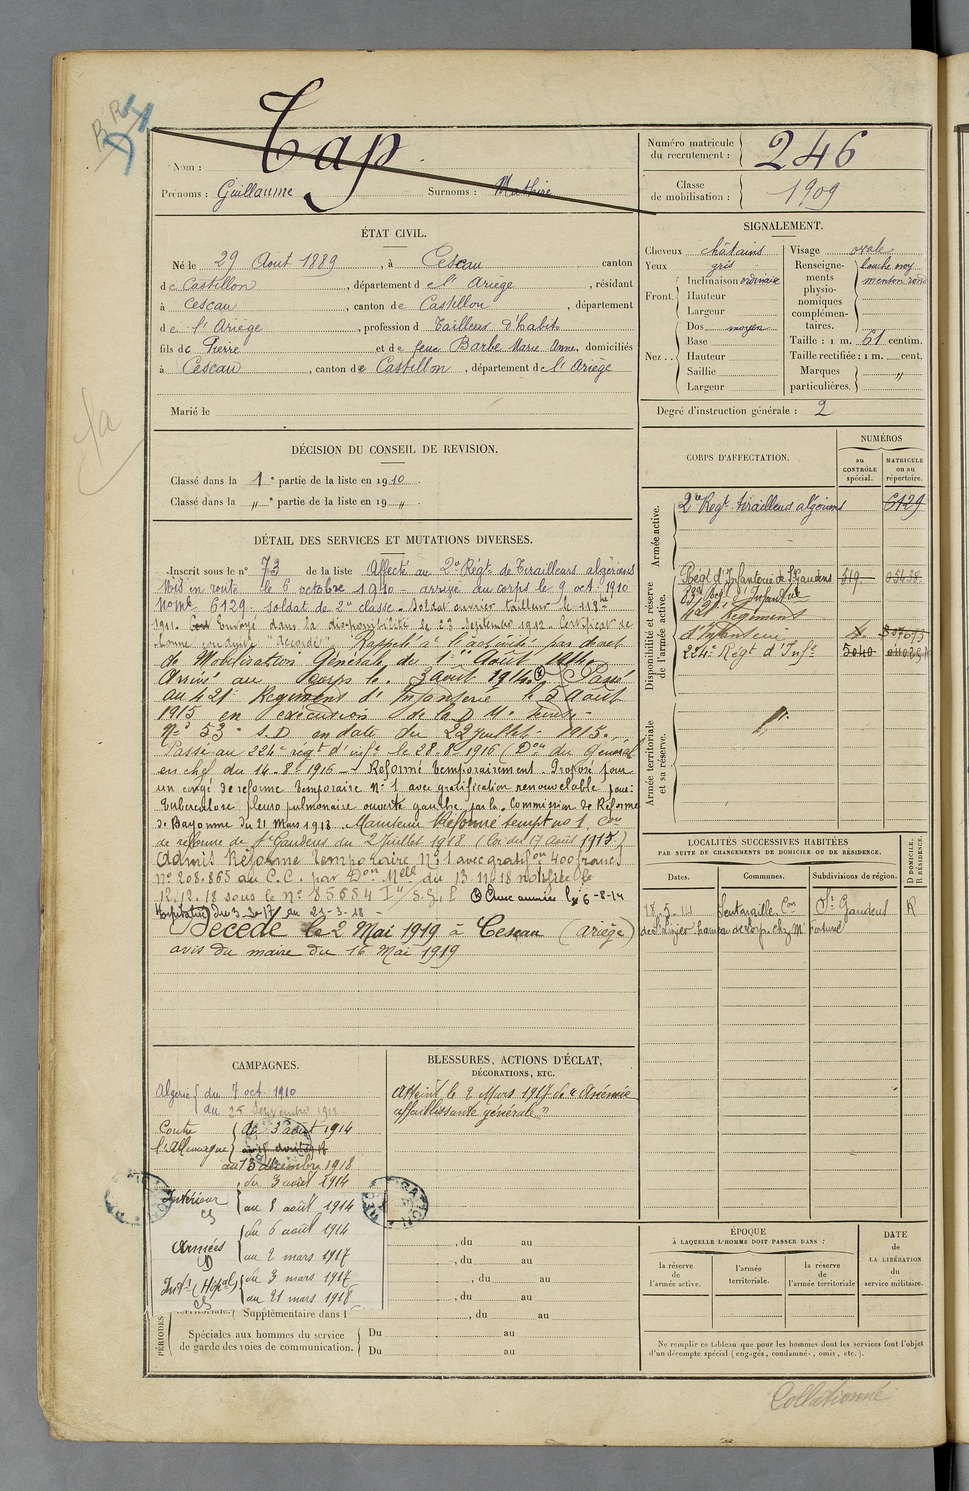 R R 4
D
Nom : Cap
Prénoms : Guillaume Surnoms : Mathieu
Numéro matricule du recrutement : 246
Classe de mobilisation : 1909
ÉTAT CIVIL.
Né le 29 Aout 1889, à Cescau canton
de Castillon, département de l'Ariège, résidant
à Cescau, canton de Castillon, département
de l'Ariège, profession d Tailleur d'habits
fils de Pierre et de feue Barbe Marie Anne, domiciliés
à Cescau, canton de Castillon, département de l'Ariège
Marié le
SIGNALEMENT.
Cheveux châtains
Yeux gris
Front. Inclinaison ordinaire
Hauteur
Largeur
Nez . . Dos moyen
Base
Hauteur
Saillie
Largeur
Visage ovale
Renseignements physionomiques complémentaires. bouche moy menton rond
Taille : 1 m. 61 centim.
Taille rectifiée : 1 m. cent.
Marques particulières. "
Degré d'instruction générale : 2
DÉCISION DU CONSEIL DE REVISION.
Classé dans la 1e partie de la liste en 1910.
Classé dans la " e partie de la liste en 19 " .
CORPS D'AFFECTATION.
NUMÉROS
au CONTRÔLE spécial.
MATRICULE ou au répertoire.
Armée active.
2e Regt. tirailleurs algériens 6129
Disponibilité et réserve de l'armée active.
Régt d'Infanterie de St Gaudens 519
d'Infanterie
421e Régiment
d'Infanterie
224e Régt d'Infie 5040
Armée territoriale et sa réserve.
DÉTAIL DES SERVICES ET MUTATIONS DIVERSES.
Inscrit sous le n° 73 de la liste Affecté au 2e Régt de Tirailleurs algériens
Mis en route le 6 octobre 1910 - arrivé au corps le 9 oct. 1910
Nomé 6129. soldat de 2e classe. Soldat ouvrier tailleur le 11
1911. Envoyé dans la disponibilité le 23 Septembre 1912. Certificat de
bonne conduite "Accordé". Rappelé à l'activité par décret
de Mobilisation Générale du 1er Août 1914.
Arrivé au Corps le 3 août 1914. Passé
au 421e Regiment d'Infanterie le 5 Août
1915 en exécution de la D. M.
N° 53 S.D. en date du 22 juillet 1915.
Passé au 224e regt d'infie le 28-8-1916 (Don du General
en chef du 14-8-1916 - Reformé temporairement. Proposé pour
un congé de reforme temporaire N° 1 avec gratification renouvelable pour:
Tuberculose pleuro pulmonaire ouverte gauche par la Commission de Réforme
de Bayonne du 21 Mars 1918. Maintenu Réformé tempre no 1, Con
de reforme de St Gaudens du 2 Juillet 1918 (loi du 17 août 1915)
Admis Réforme temporaire N° 1 avec gratifon 400 francs
N° 208.865 au C.C. par Don Melle du 13.11.18 notifiée le
12.12.18 sous le N° 85654 I
Hospitalisé du 3-3-17 au 21-3-18 -
Décédé le 2 Mai 1919 à Cescau (Ariège)
avis du maire du 16 Mai 1919
LOCALITÉS SUCCESSIVES HABITÉES
PAR SUITE DE CHANGEMENTS DE DOMICILE OU DE RÉSIDENCE.
Dates. Communes. Subdivisions de région. D DOMICILE. R RÉSIDENCE.
18.5.14 Lentaraille, Con St Gaudens R
de St Lizier chez Mr Fortuné
CAMPAGNES.
Algérie du 7 oct. 1910
au 25 Septembre 1912
Contre l'Allemagne du 3 août 1914
au 13 décembre 1918
Intérieur CS du 3 août 1914
au 5 août 1914
Armées D du 6 août 1914
au 2 mars 1917
Intr (Hôpal) CS du 3 mars 1917
au 21 mars 1918
BLESSURES, ACTIONS D'ÉCLAT,
DÉCORATIONS, ETC.
Atteint le 2 Mars 1917 de "Anémie
affaiblissante générale"
PÉRIODES
territoriale. Supplémentaire dans l
, du au
, du au
, du au
, du au
, du au
Spéciales aux hommes du service de garde des voies de communication.
Du au
Du au
ÉPOQUE
À LAQUELLE L'HOMME DOIT PASSER DANS :
la réserve de l'armée active.
l'armée territoriale.
la réserve de l'armée territoriale
DATE de LA LIBÉRATION du service militaire.
Ne remplir ce tableau que pour les hommes dont les services font l'objet
d'un décompte spécial (engagés, condamnés, omis, etc.).
Collationné